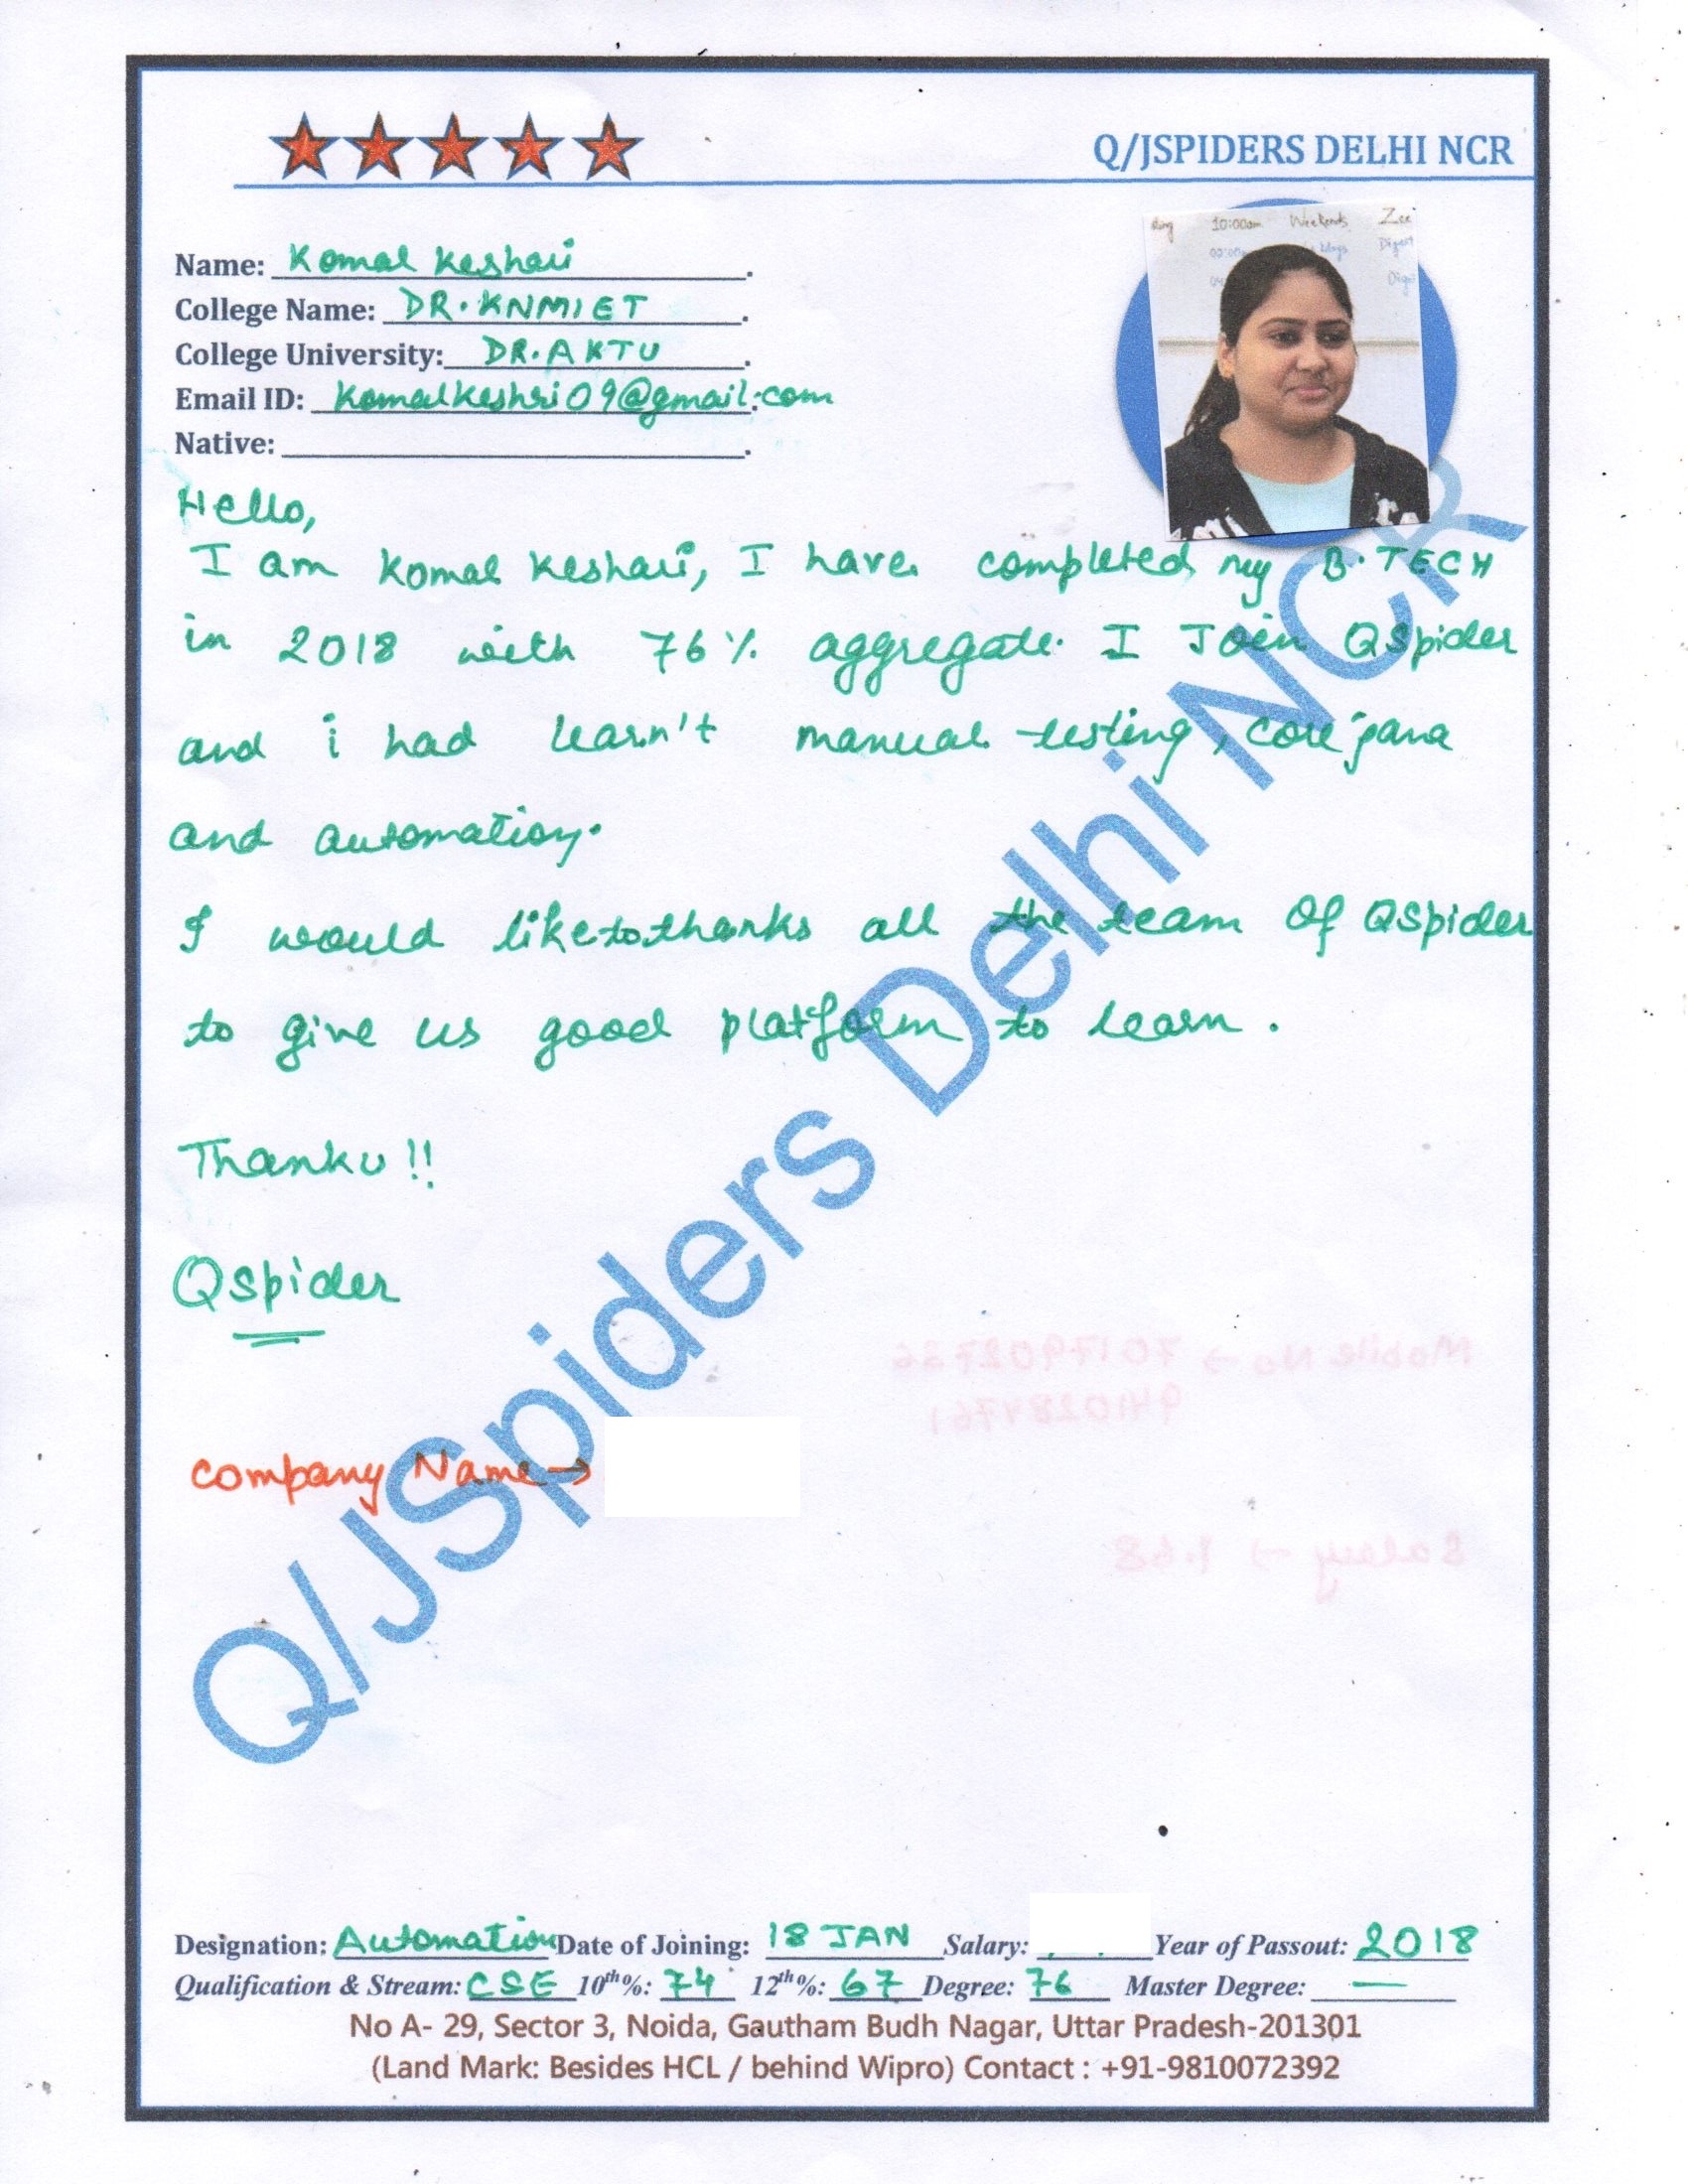 Q/JSPIDERS DELHI NCR
Name: Komal Keshari
College Name: DR. KNMIET
College University: DR. AKTU
Email ID: Komalkeshri09@gmail.com
Native:
Hello,
I am Komal Keshari, I have completed my B.TECH
in 2018 with 76% aggregate. I Join QSpider
and i had learn't manual testing, core java
and automation.
I would like to thanks all the team of QSpider
to give us good platform to learn.
Thanku!!
QSpider
Q/JSpiders Delhi NCR
Company Name →
Designation: Automation Date of Joining: 18 JAN Salary: Year of Passout: 2018
Qualification & Stream: CSE 10th%: 74 12th%: 67 Degree: 76 Master Degree: —
No A- 29, Sector 3, Noida, Gautham Budh Nagar, Uttar Pradesh-201301
(Land Mark: Besides HCL / behind Wipro) Contact : +91-9810072392